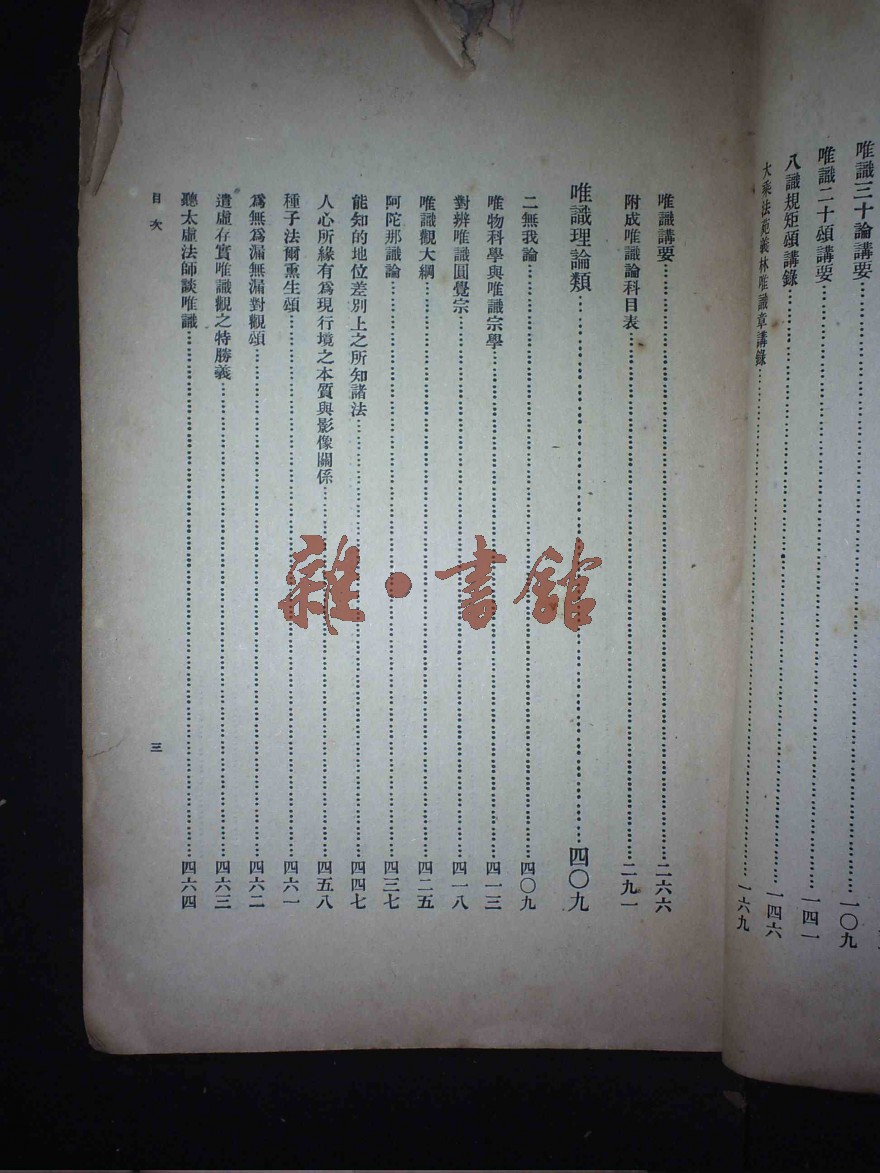 唯識三十論講要……一〇九
唯識二十頌講要……一四一
八識規矩頌講錄……一四六
大乘法苑義林唯識章講錄……一六九
唯識講要……二六六
附成唯識論科目表……二九一
唯識理論類……四〇九
二無我論……四〇九
唯物科學與唯識宗學……四一三
對辨唯識圓覺宗……四一八
唯識觀大綱……四二五
阿陀那識論……四三七
能知的地位差別上之所知諸法……四四七
人心所緣有為現行境之本質與影像關係……四五八
種子法爾熏生頌……四六一
為無為漏無漏對觀頌……四六二
遣虛存實唯識觀之特勝義……四六三
聽太虛法師談唯識……四六四
目次
三
雜·書館